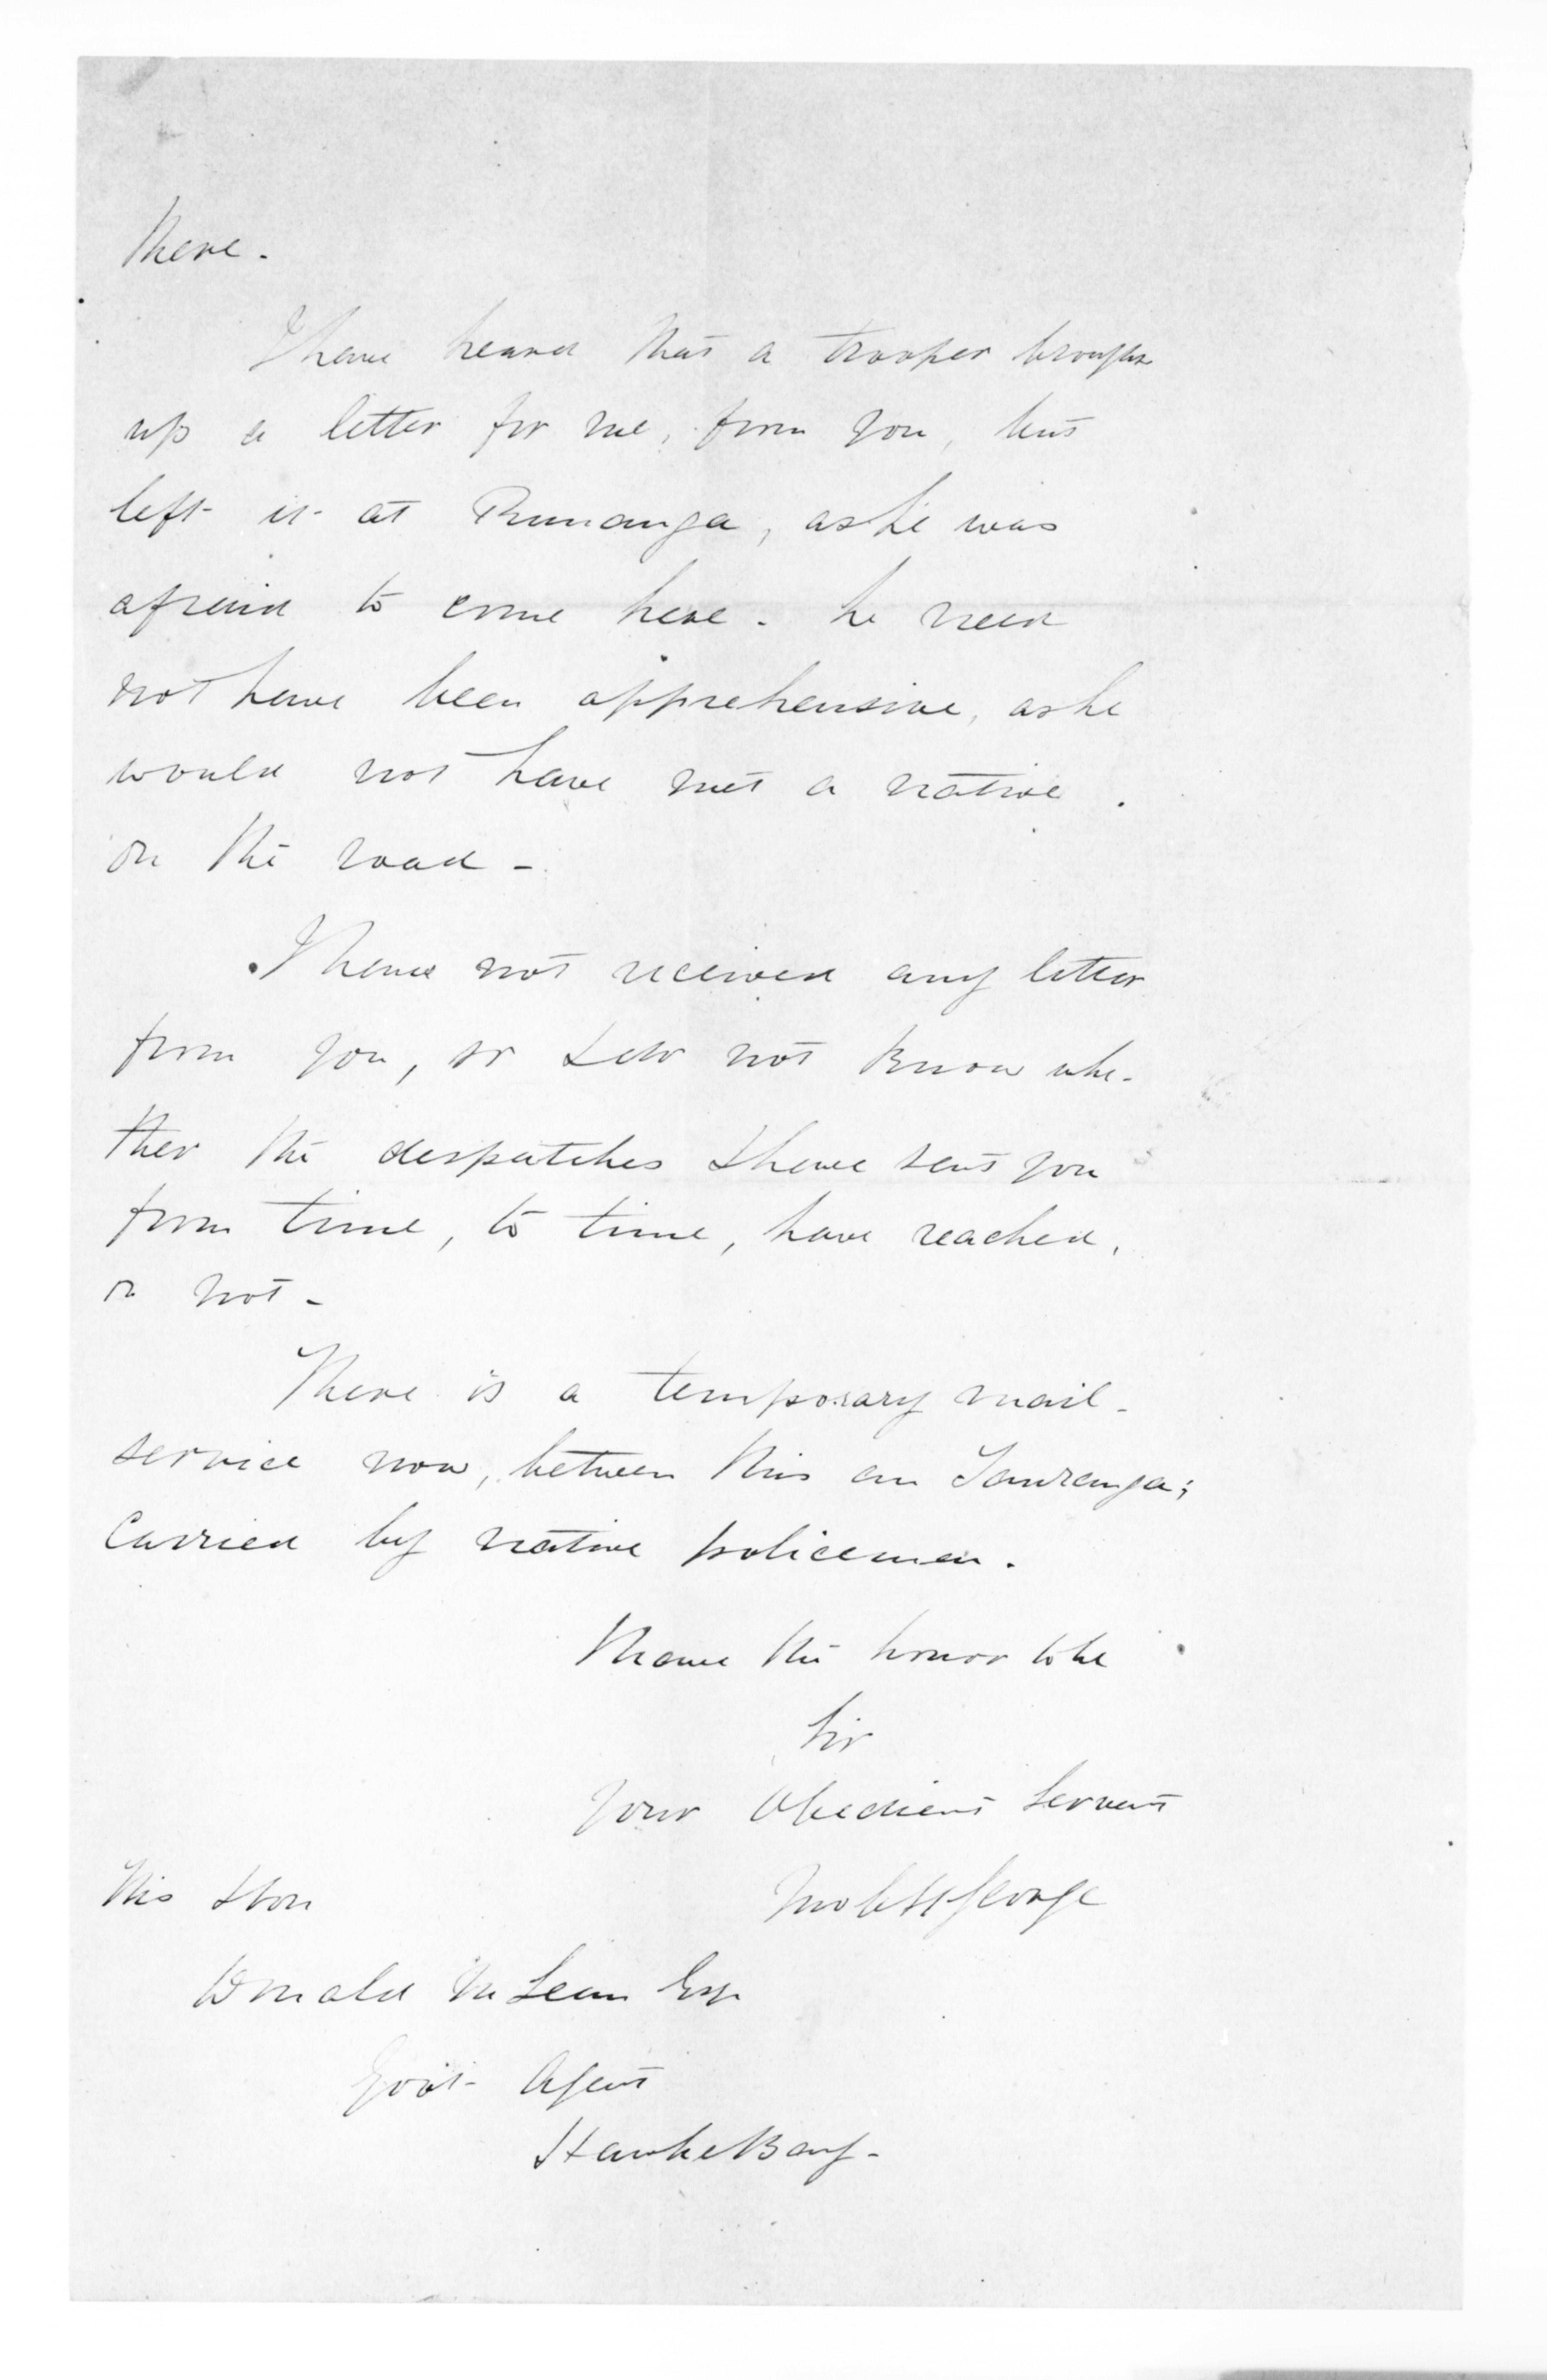 there -
I have heard that a trooper brought
up a letter for me, from you, but
left it at Runanga, as he was
afraid to come here - he need
not have been apprehensive, as he
would not have met a native
on the road -
I have not received any letter
from you, so I do not know whe-
ther the despatches I have sent you
from time, to time, have reached,
or not -
There is a temporary mail -
service now, between this and Tauranga;
carried by native policemen.
I have the honor to be
Sir
Your Obedient Servant
St George
His Hon
Donald McLean Esq
Govt Agent
Hawke Bay -